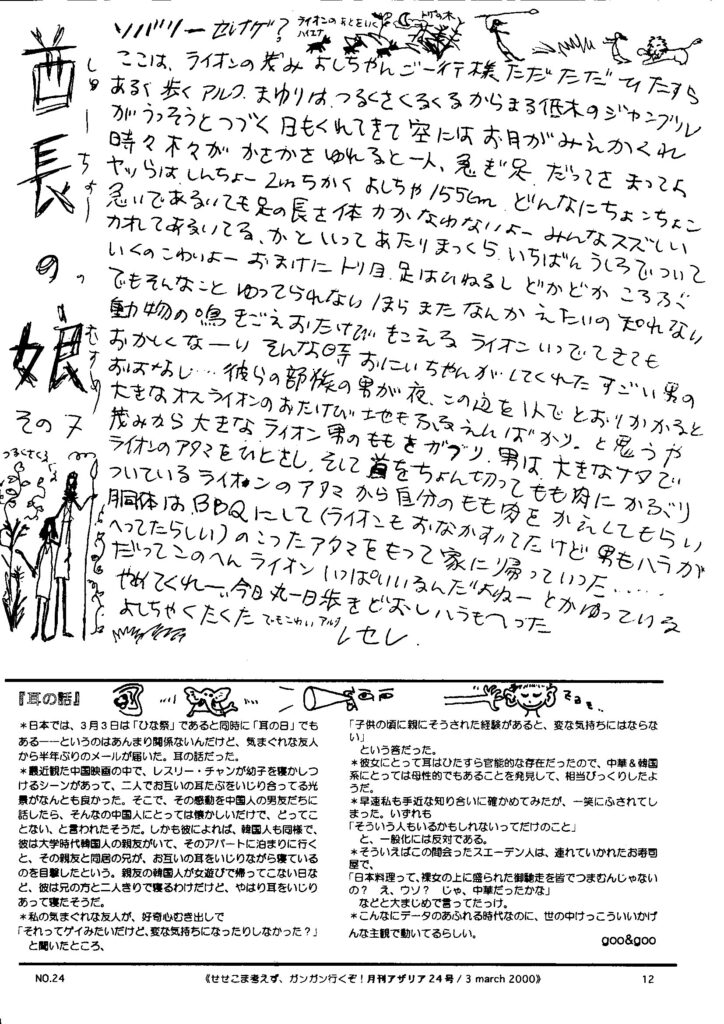 ソバソー セレナゲ?
ライオンの あとをいく ハイエナ
トゲの木
酋長の娘
しゅーちょーのむすめっ
その7
つるくさくるくる
ここは、ライオンの茂み よしちゃんご一行様 ただただ ひたすら
あるく 歩く アルク. まゆりは、つるくさくるくるからまる低木のジャングル
がうっそうとつづく 日もくれてきて 空には お月がみえかくれ
時々木々が かさかさ ゆれると一人、急ぎ足. だってさ まってよ
ヤツらは しんちょー 2mちかく よしちゃ 155cm. どんなにちょこちょこ
急いであるいても足の長さ体力かなわないよー みんなスズしい
カオしてあるいてる、かといって あたりまっくら. いちばんうしろでついて
いくのこわいよー おまけに トリ目. 足はひねるし どかどか ころぶぐ
でもそんなこと ゆってられない ほら また なんか えたいの 知れない
動物の鳴きごえおたけびもきこえる ライオン いつでてきても
おかしくなーい そんな時 おにいちゃんがしてくれた すごい男の
おはなし…. 彼らの部族の男が夜、この辺を1人でとおりかかると
大きなオスライオンのおたけび 土地もふるえんばかり. と思うや
茂みから 大きなライオン 男のももをガブリ. 男は、大きなナタで
ライオンのアタマをひとさし. そして 首をちょん切ってもも肉にかぶり
ついているライオンのアタマから自分のもも肉をかえしてもらい
胴体はBBQにして(ライオンもおなかすいてたけど 男もハラが
へってたらしい) のこったアタマをもって家に帰っていった.....
だってこのへん ライオン いっぱいいるんだよねー とかゆっている
やめてくれー、今日丸一日歩きどおし ハラもへった
よしちゃくたくた でもこわい アルク レセレ.
『耳の話』
*日本では、3月3日は「ひな祭」であると同時に「耳の日」でも
ある――というのはあんまり関係ないんだけど、気まぐれな友人
から半年ぶりのメールが届いた。耳の話だった。
*最近観た中国映画の中で、レスリー・チャンが幼子を寝かしつ
けるシーンがあって、二人でお互いの耳たぶをいじり合ってる光
景がなんとも良かった。そこで、その感動を中国人の男友だちに
話したら、そんなの中国人にとっては懐かしいだけで、どってこ
とない、と言われたそうだ。しかも彼によれば、韓国人も同様で、
彼は大学時代韓国人の親友がいて、そのアパートに泊まりに行く
と、その親友と同居の兄が、お互いの耳をいじりながら寝ている
のを目撃したという。親友の韓国人が女遊びで帰ってこない日な
ど、彼は兄の方と二人きりで寝るわけだけど、やはり耳をいじり
あって寝たそうだ。
*私の気まぐれな友人が、好奇心むき出しで
「それってゲイみたいだけど、変な気持ちになったりしなかった?」
と聞いたところ、
「子供の頃に親にそうされた経験があると、変な気持ちにはならな
い」
という答だった。
*彼女にとって耳はひたすら官能的な存在だったので、中華&韓国
系にとっては母性的でもあることを発見して、相当びっくりしたよ
うだ。
*早速私も手近な知り合いに確かめてみたが、一笑にふされてし
まった。いずれも
「そういう人もいるかもしれないってだけのこと」
と、一般化には反対である。
*そういえばこの間会ったスエーデン人は、連れていかれたお寿司
屋で、
「日本料理って、裸女の上に盛られた御馳走を皆でつまむんじゃない
の? え、ウソ? じゃ、中華だったかな」
などと大まじめで言ってたっけ。
*こんなにデータのあふれる時代なのに、世の中けっこういいかげ
んな主観で動いてるらしい。
goo&goo
NO.24
《せせこま考えず、ガンガン行くぞ!月刊アザリア24号/3 march 2000》
12